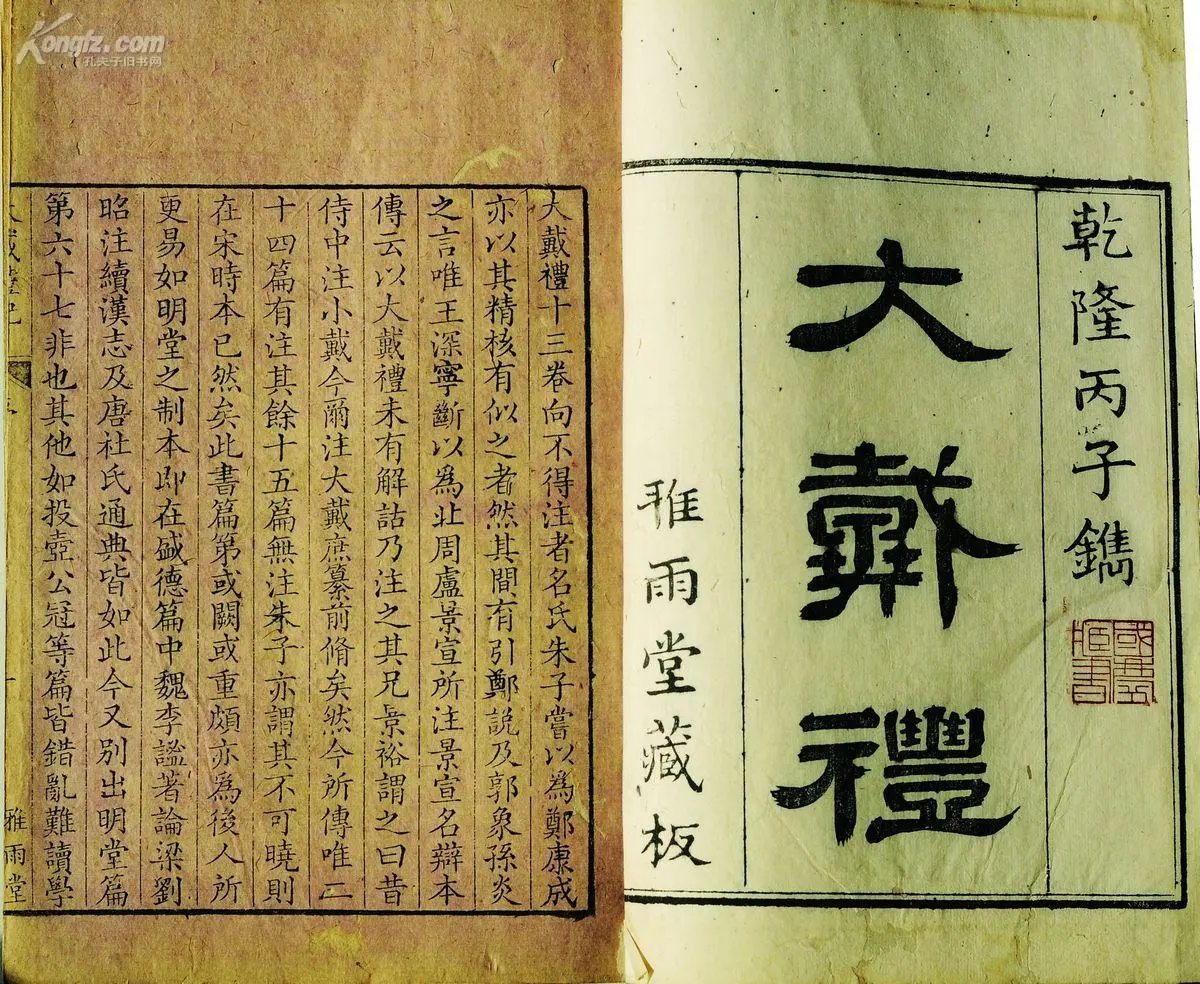 乾隆丙子鐫
大戴禮
雅雨堂藏板
大戴禮十三卷向不得注者名氏朱子嘗以為鄭康成
亦以其精核有似之者然其間有引鄭説及郭象孫炎
之言唯王深寧斷以為北周盧景宣所注景宣名辯本
傳云以大戴禮未有解詁乃注之其兄景裕謂之曰昔
侍中注小戴今爾注大戴庶纂前脩矣然今所傳唯二
十四篇有注其餘十五篇無注朱子亦謂其不可曉則
在宋時本已然矣此書篇第或闕或重頗亦為後人所
更易如明堂之制本即在盛德篇中魏李謐著論梁劉
昭注續漢志及唐杜氏通典皆如此今又別出明堂篇
第六十七非也其他如投壺公冠等篇皆錯亂難讀學
大戴禮記
一
雅雨堂
Kongfz.com
孔夫子旧书网